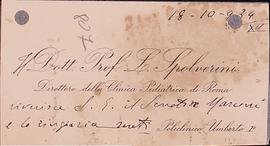 18-10-934
XII
Il Dott. Prof. L. Spolverini
Direttore della Clinica Pediatrica di Roma
riverisce S. E. il Senatore Marconi
e lo ringrazia
Policlinico Umberto I°